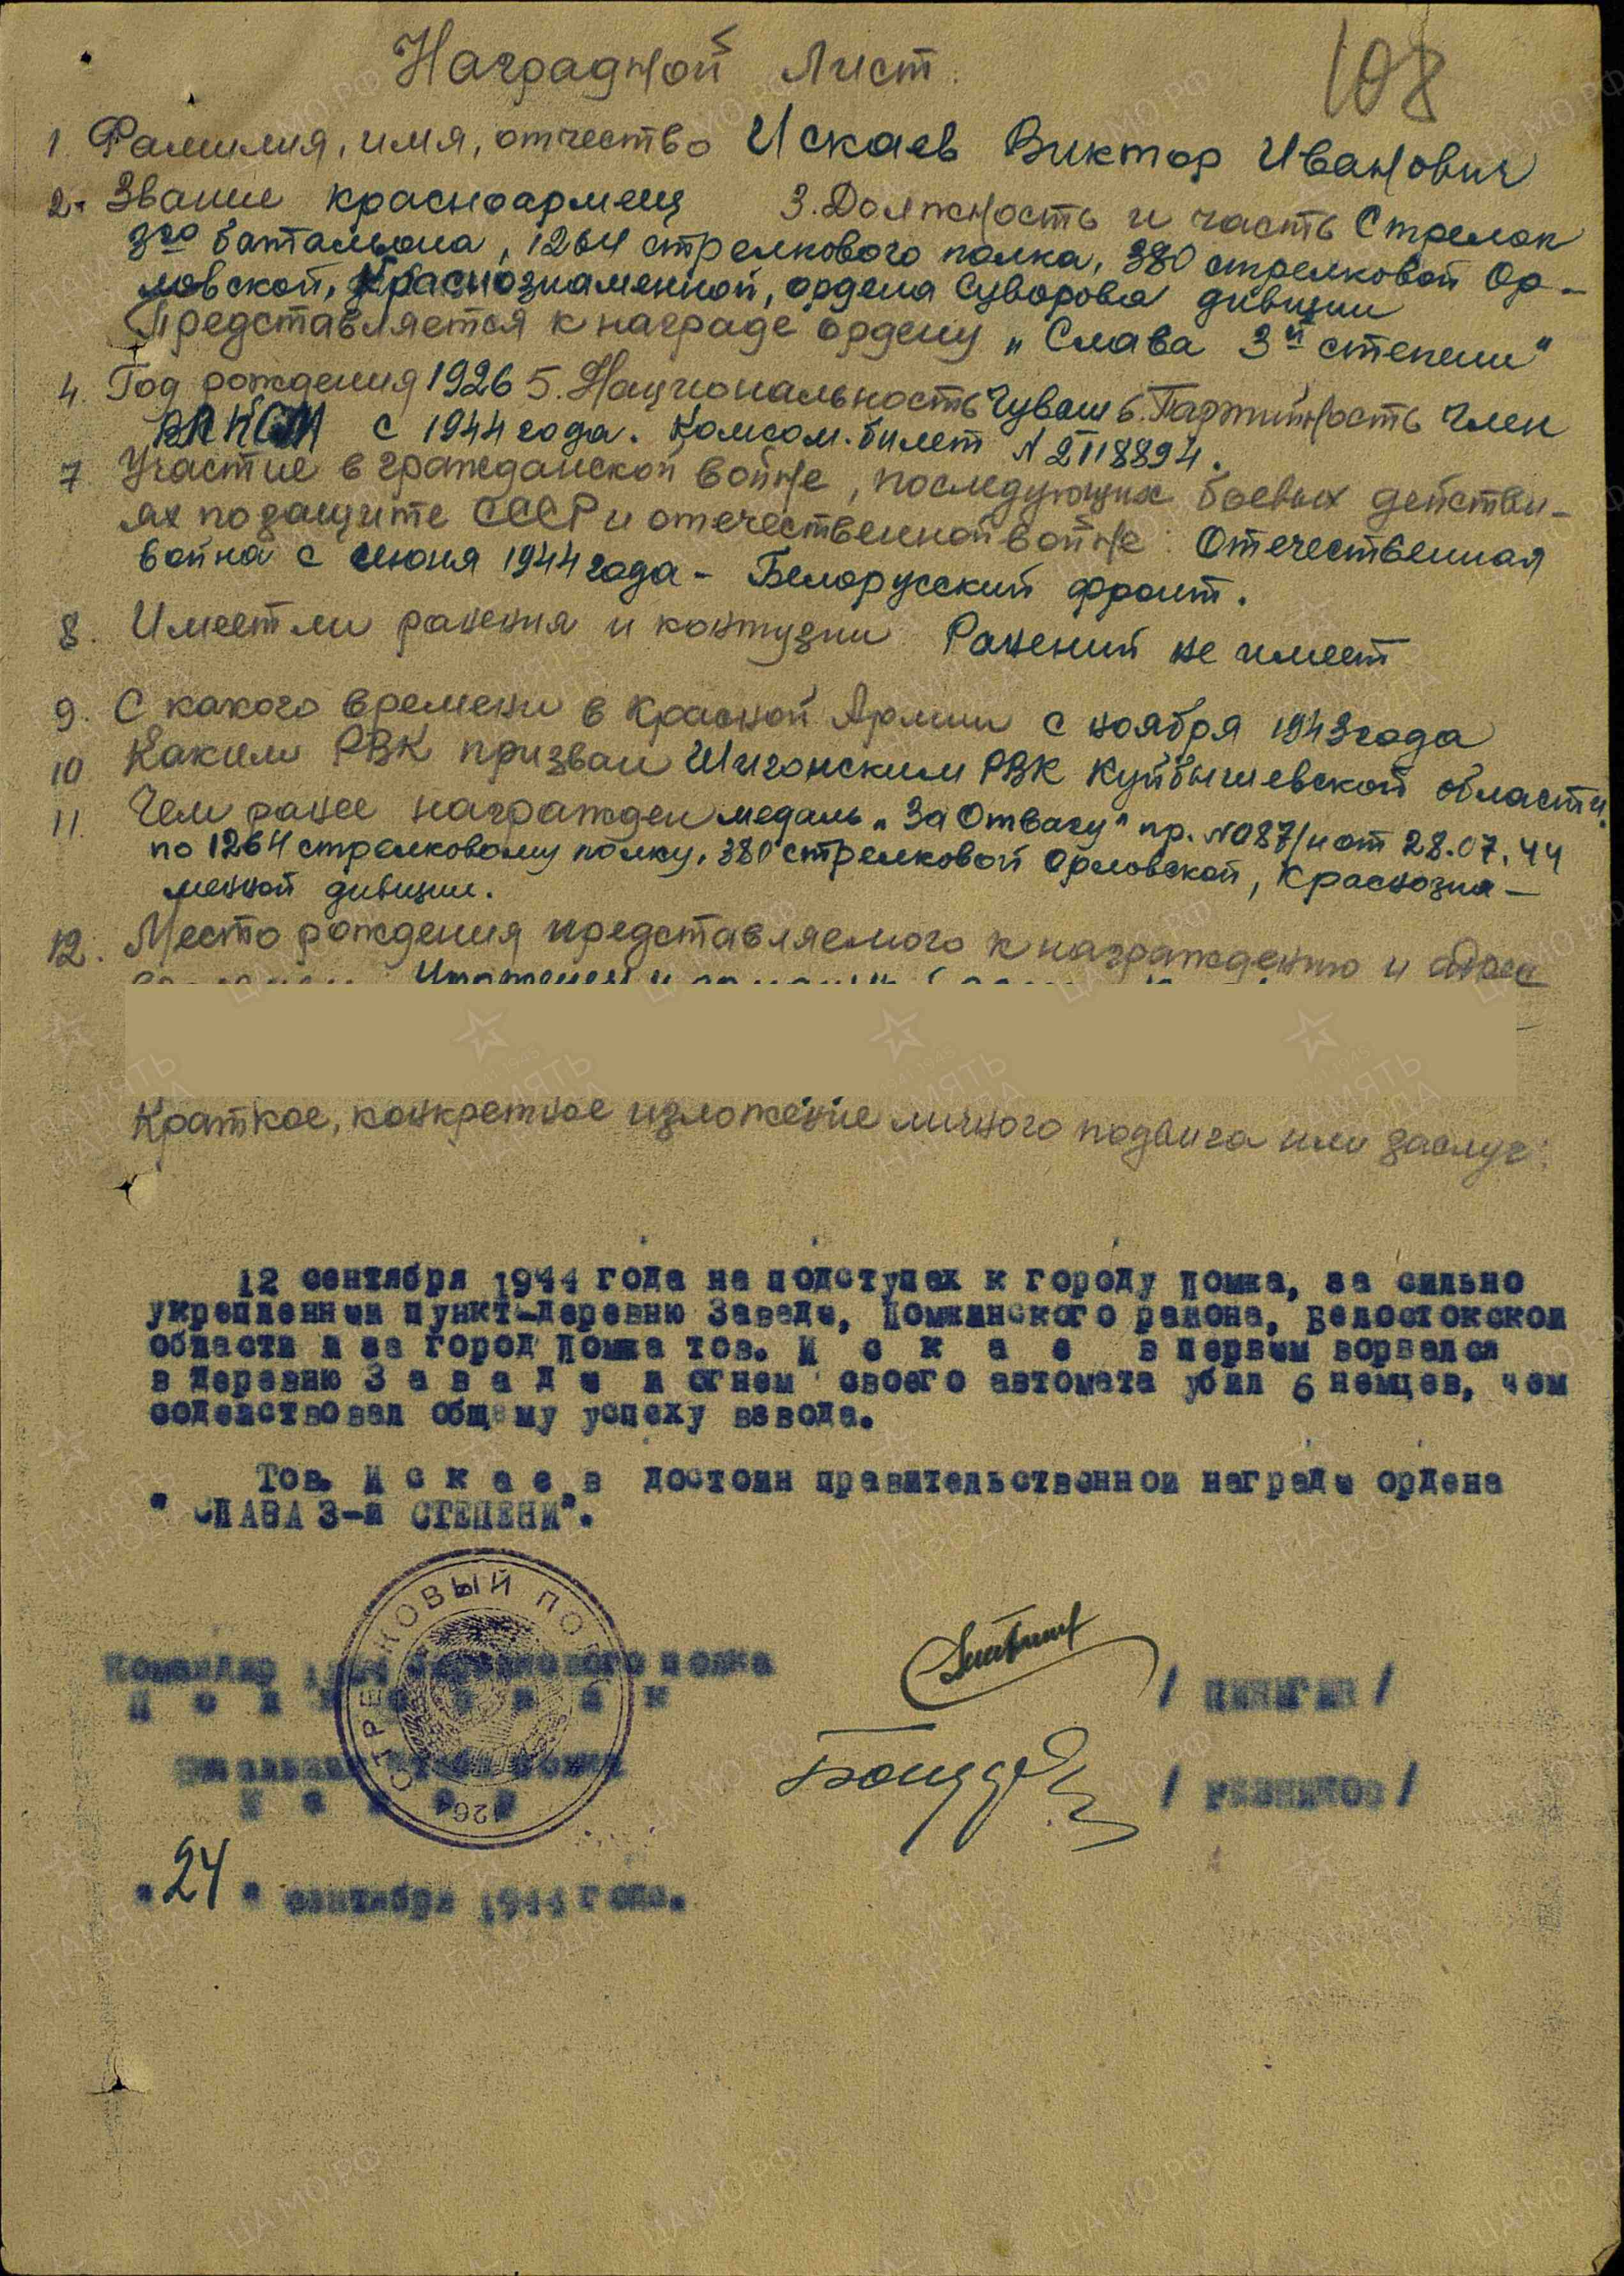 Наградной Лист.
108
1. Фамилия, имя, отчество Искаев Виктор Иванович
2. Звание красноармеец 3. Должность и часть Стрелок
3го батальона, 1264 стрелкового полка, 380 стрелковой Ор-
ловской, Краснознаменной, ордена Суворова дивизии
Представляется к награде ордену „Слава 3й степени"
4. Год рождения 1926 5. Национальность Чуваш 6. Партийность Член
ВЛКСМ с 1944 года. Комсом. билет №
7. Участие в гражданской войне, последующих боевых действи-
ях по защите СССР и отечественной войне: Отечественная
война с июня 1944 года - Белорусский фронт.
8. Имеет ли ранения и контузии Ранений не имеет
9. С какого времени в Красной Армии с ноября 1943 года
10 Каким РВК призван Шигонским РВК Куйбышевской области.
11. Чем ранее награжден медаль „За Отвагу" пр. №087/н от 28.07.44
по 1264 стрелковому полку, 380 стрелковой Орловской, Краснозна-
менной дивизии.
12. Место рождения представляемого к награждению и адрес
Краткое, конкретное изложение личного подвига или заслуг:
12 сентября 1944 года на подступах к городу Ломжа, за сильно
укрепленный пункт-деревню Заваде, Ломжинского района, Белостокской
области и за город Ломжа тов. И с к а е в первым ворвался
в деревню З а в а д ы и огнем своего автомата убил 6 немцев, чем
содействовал общему успеху взвода.
Тов. И с к а е в достоин правительственной награды ордена
" СЛАВА 3-й СТЕПЕНИ".
СТРЕЛКОВЫЙ ПОЛК
1264
Командир 1264 стрелкового полка
П о л к о в н и к
/ ПИНЯГИН /
Начальник штаба полка
/ РЕЗНИКОВ /
"24" сентября 1944 года.
ПАМЯТЬ НАРОДА
ЦАМО РФ